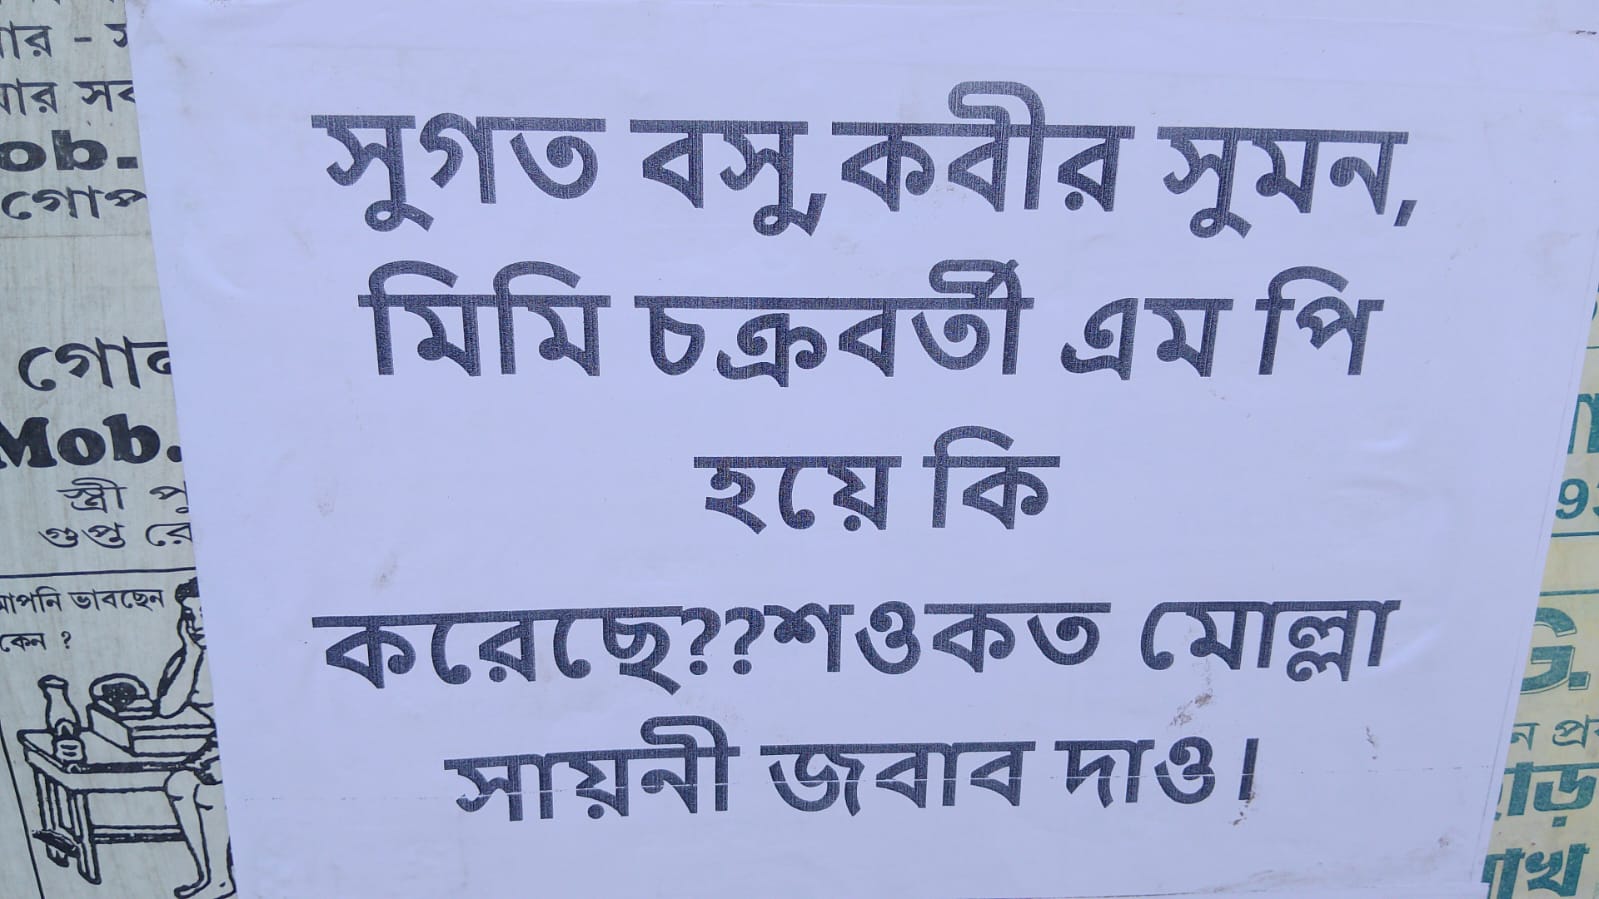 সুগত বসু,কবীর সুমন,
মিমি চক্রবর্তী এম পি
হয়ে কি
করেছে??শওকত মোল্লা
সায়নী জবাব দাও।
Mob.
স্ত্রী
গুপ্ত
আপনি ভাবছেন
কেন ?